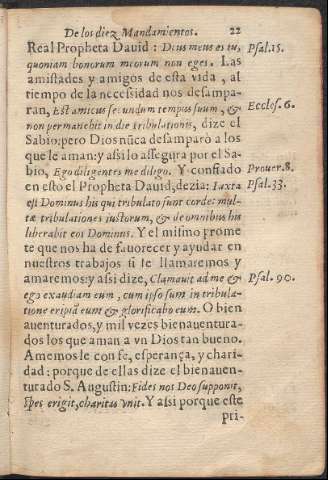 De los diez Mandamientos. 22
Real Propheta Dauid: Deus meus es tu, Psal. 15.
quoniam bonorum meorum non eges. Las
amistades y amigos de esta vida, al
tiempo de la necessidad nos desampa-
ran, Est amicus secundum tempus suum, & Eccles. 6.
non permanebit in die tribulationis, dize el
Sabio; pero Dios nũca desamparò a los
que le aman: y assi lo assegura por el Sa-
bio, Ego diligentes me diligo. Y confiado Prouer. 8.
en esto el Propheta Dauid, dezia: Iuxta Psal. 33.
est Dominus his qui tribulato sunt corde: mul-
tæ tribulationes iustorum, & de omnibus his
liberabit eos Dominus. Y el mismo prome
te que nos ha de fauorecer y ayudar en
nuestros trabajos si le llamaremos y
amaremos: y assi dize, Clamauit ad me & Psal. 90.
ego exaudiam eum, cum ipso sum in tribula-
tione eripiã eum & glorificabo eum. O bien
auenturados, y mil vezes bienauentura-
dos los que aman a vn Dios tan bueno.
Amemosle con fe, esperança, y chari-
dad: porque de ellas dize el bienauen-
turado S. Augustin: Fides nos Deo supponit,
spes erigit, charitas vnit. Y assi porque este
pri-